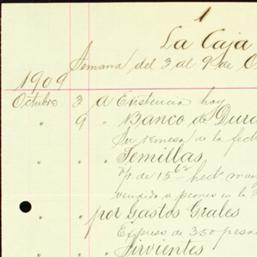 1
La Caja
Semana del 3 al 9 de O
1909
Octubre 3 a Existencia hoy
" 9 " Banco de Dura
Su remesa de la fecha
" " Semillas
v/. de 15 hect maí
vendido a peones en la
" " por Gastos Grales
Expreso de 350 pesos
" " Sirvientes